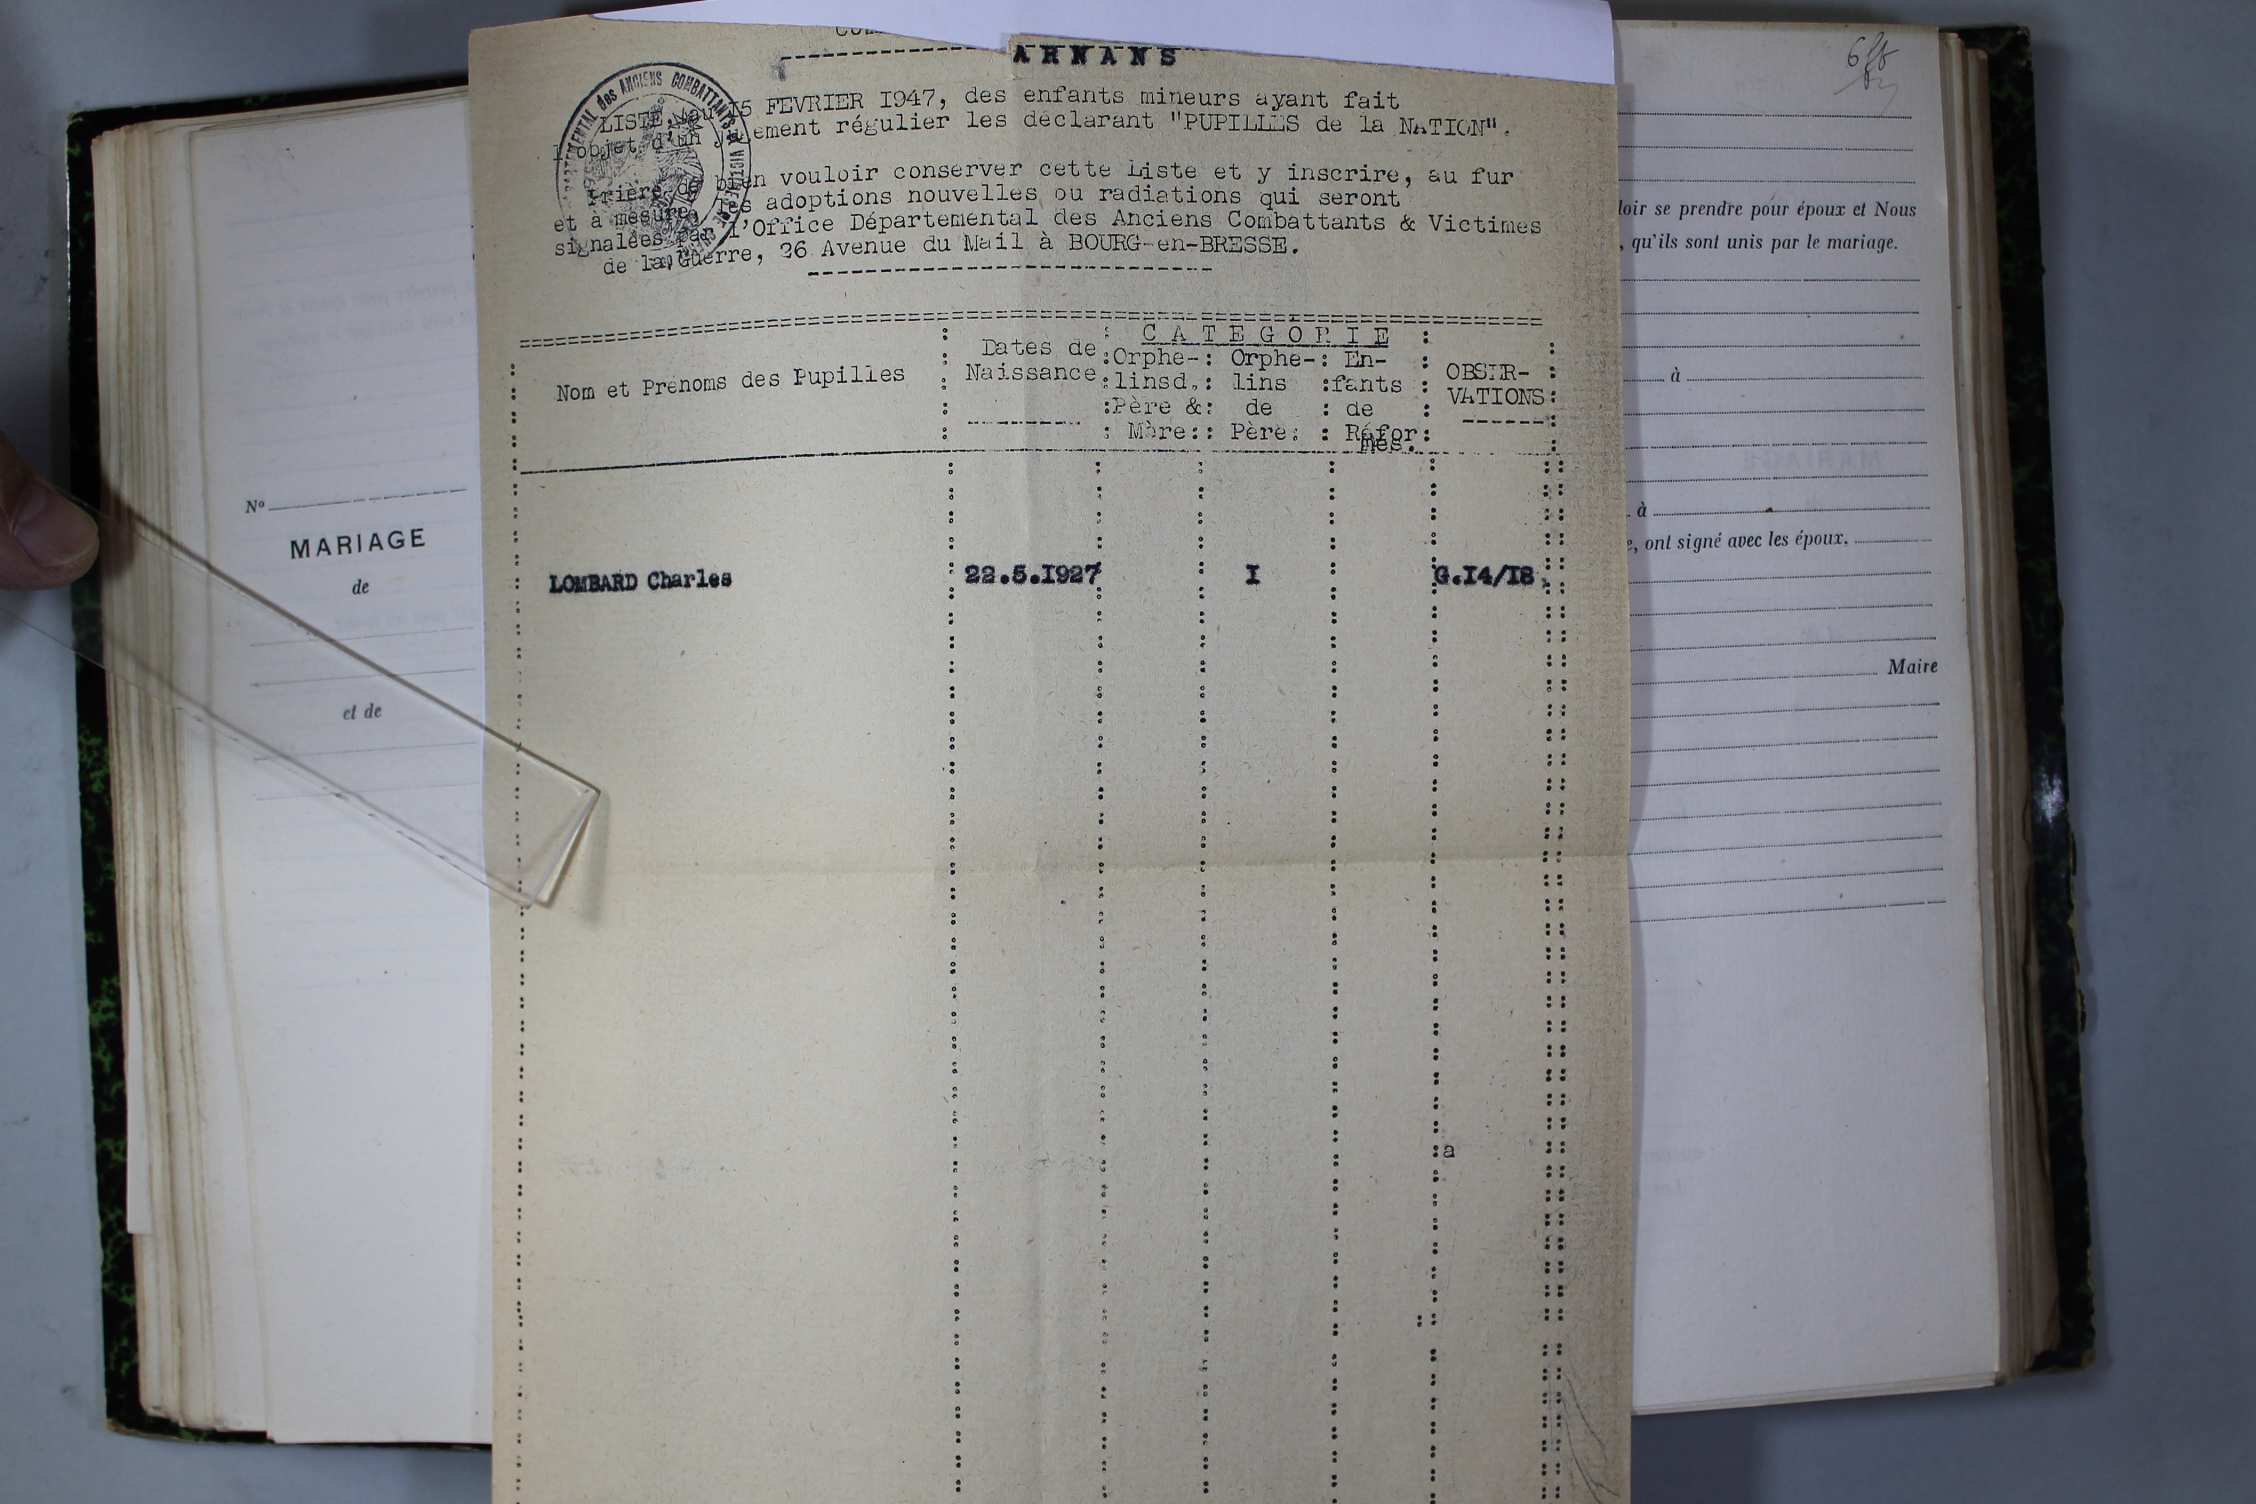 ARNANS
LISTE, au 15 FEVRIER I947, des enfants mineurs ayant fait
l'objet d'un jugement régulier les déclarant "PUPILLES de la NATION".
Prière de bien vouloir conserver cette Liste et y inscrire, au fur
et à mesure, les adoptions nouvelles ou radiations qui seront
signalées par l'Office Départemental des Anciens Combattants & Victimes
de la Guerre, 26 Avenue du Mail à BOURG-en-BRESSE.
DEPARTEMENTAL des ANCIENS COMBATTANTS
Nom et Prénoms des Pupilles
Dates de
Naissance
CATEGORIE
Orphe-
linsd.
Père &
Mère:
Orphe-
lins
de
Père:
En-
fants
de
Réfor
més.
OBSER-
VATIONS
LOMBARD Charles 22.5.I927 I G.I4/I8
a
Nº
MARIAGE
de
et de
se prendre pour époux et Nous
, qu'ils sont unis par le mariage.
à
à
, ont signé avec les époux.
Maire